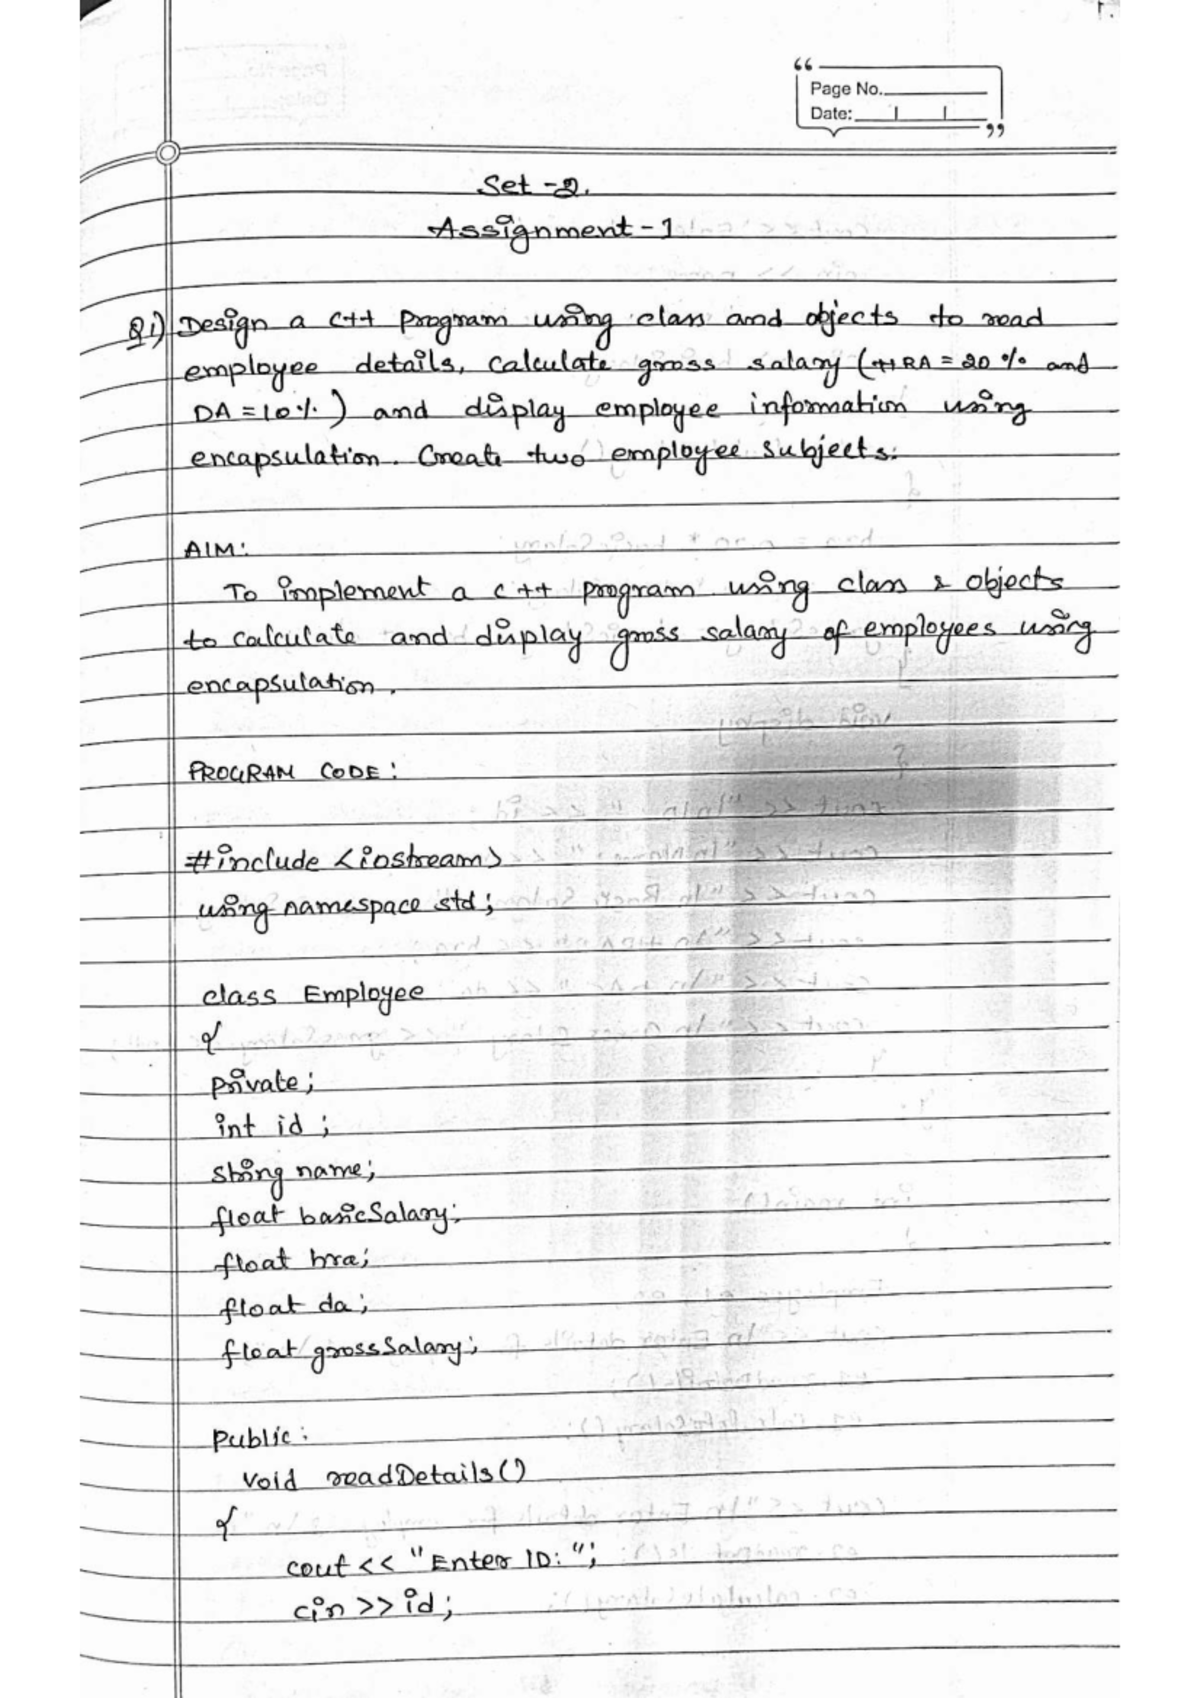 Page No.
Date:
Set-2.
Assignment-1
Q1) Design a C++ program using class and objects to read
employee details, calculate gross salary (HRA = 20% and
DA = 10%) and display employee information using
encapsulation. Create two employee subjects.
AIM:
To implement a C++ program using class & objects
to calculate and display gross salary of employees using
encapsulation.
PROGRAM CODE:
#include <iostream>
using namespace std;
class Employee
{
private;
int id;
string name;
float basicSalary;
float hra;
float da;
float grossSalary;
public:
void readDetails()
{
cout << "Enter ID: ";
cin >> id;